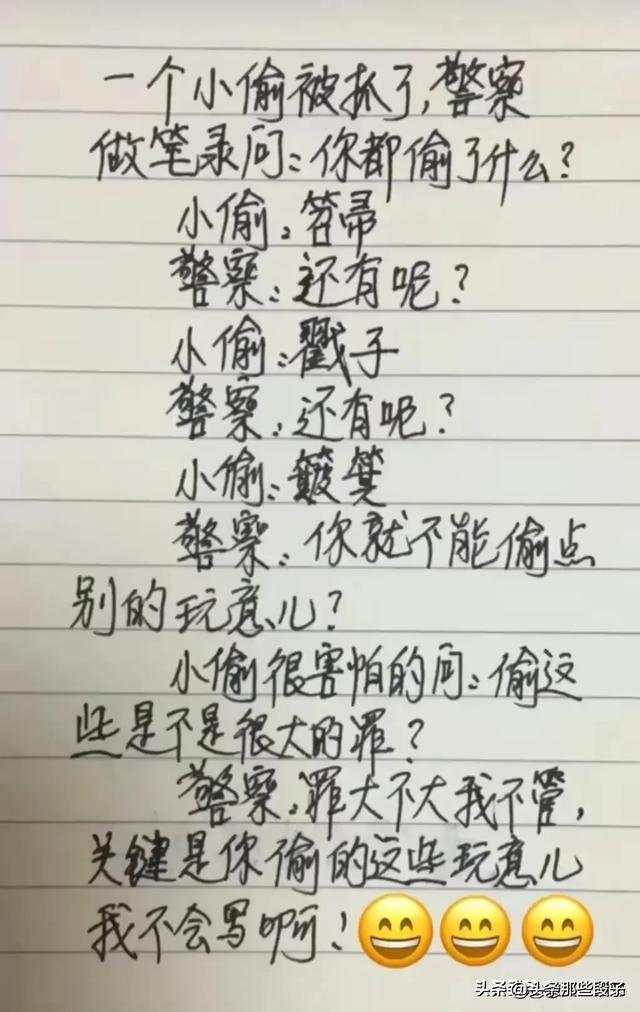 一个小偷被抓了，警察
做笔录问：你都偷了什么？
小偷：笤帚
警察：还有呢？
小偷：戳子
警察：还有呢？
小偷：簸箕
警察：你就不能偷点
别的玩意儿？
小偷很害怕的问：偷这
些是不是很大的罪？
警察：罪大不大我不管，
关键是你偷的这些玩意儿
我不会写啊！😄😄😄
头条@头条那些段子